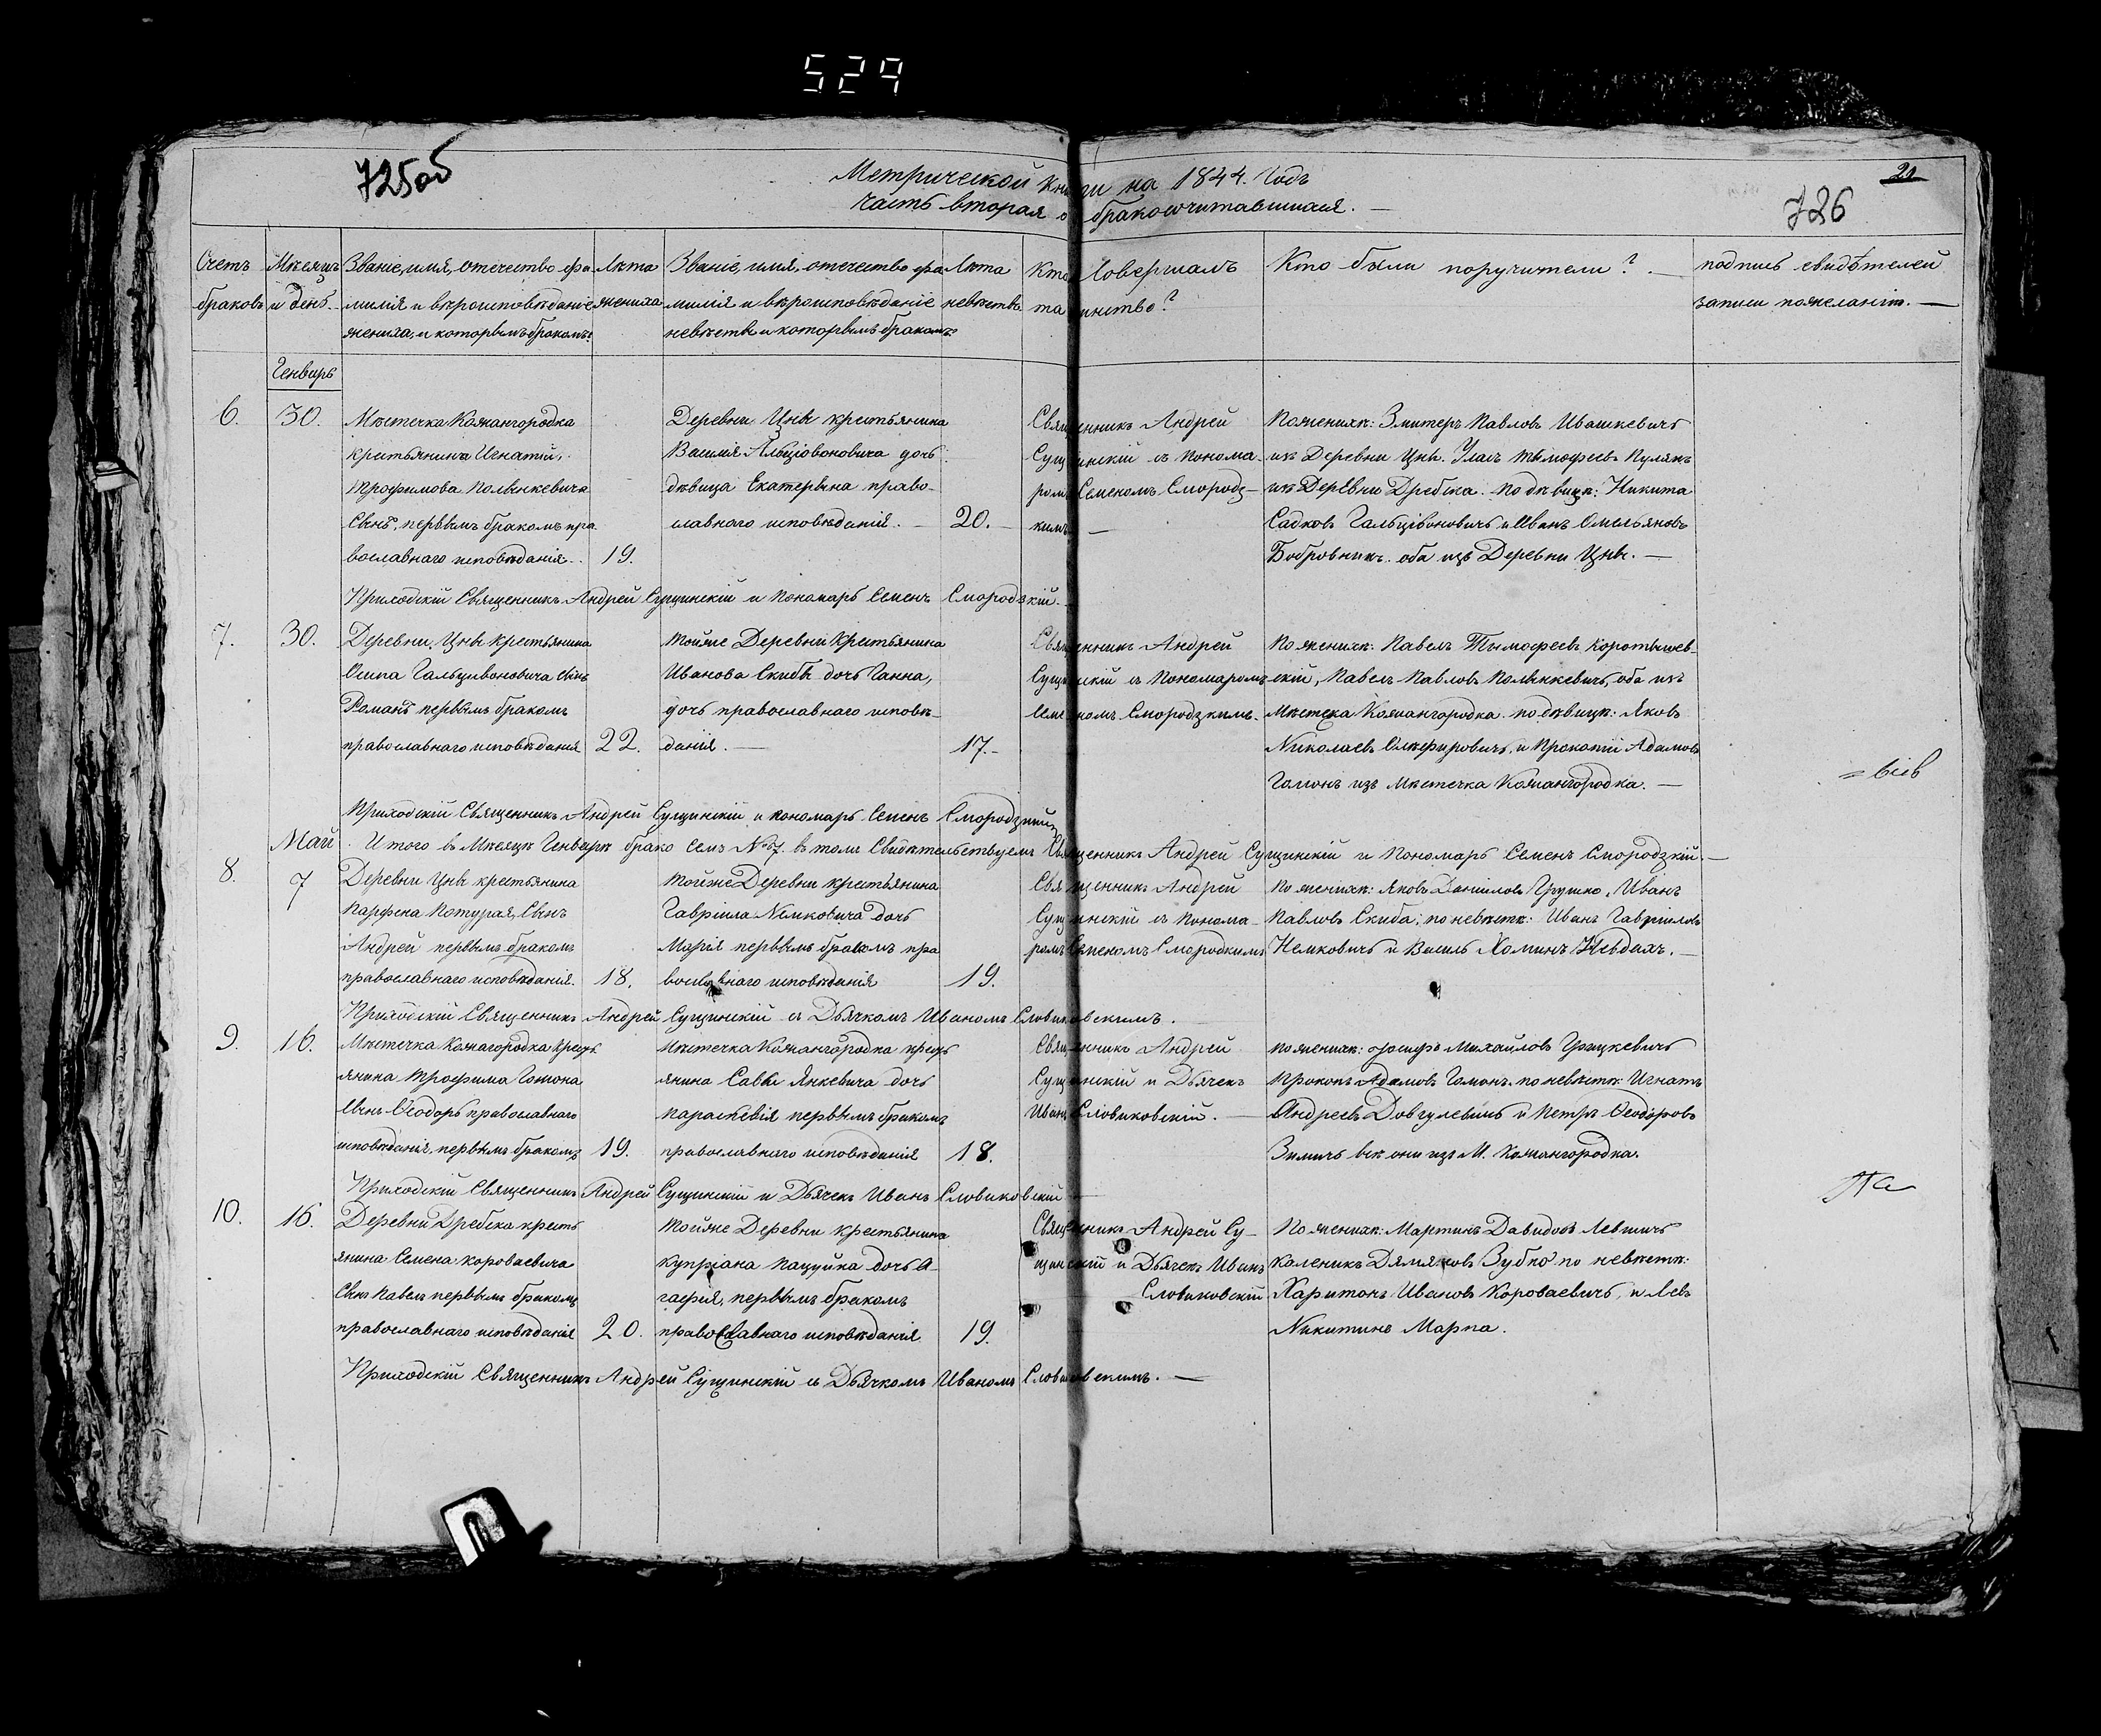 529
725об
Метрической книги на 1844. Годъ
21
726
Часть вторая о бракосочитавшихся. —
Счетъ браковъ
Мѣсяцъ и день.
Званіе, имя, отечество фамилія и вѣроисповѣданіе жениха, и которымъ бракомъ?
Лѣта жениха
Званіе, имя, отечество фамилія и вѣроисповѣданіе невѣсты и которымъ бракомъ?
Лѣта невѣсты
Кто Совершалъ таинство?
Кто были поручители? —
подпись свидѣтелей записи пожеланію. —
Генварь
6.
30.
Мѣстечка Кожангородка
крестьянина Игнатій,
Трофимова Полынкевича
Сынъ, первымъ бракомъ пра
вославнаго исповѣданія.
19.
Деревни Цны крестьянина
дочь
дѣвица Екатерына право-
славнаго исповѣданій. —
20.
Священникъ Андрей
Сущинскій съ Понома-
ромъ Семеномъ Смородз-
кимъ —
Поженихѣ: Змитеръ Павловъ Ивашкевичъ
изъ Деревни Цны. Уласъ Тымофеевъ Пулякъ
изъ Деревни Дребска. По дѣвицѣ: Никита
Садковъ Гальцівоновичъ и Иванъ Омельяновъ
Бобровникъ. оба изъ Деревни Цны. —
Приходскій Священникъ Андрей Сущинскій и Пономарь Семенъ Смородзкій.
7.
30.
Деревни, Цны Крестьянина
Осипа Гальцивоновича сынъ
Романъ первымъ бракомъ
православнаго исповѣданія
22.
Тойже Деревни Крестьянина
Иванова Скибы дочь Ганна,
дочь православнаго исповѣ-
данія. —
17.
Священникъ Андрей
Сущинскій съ Пономаромъ
Семеномъ Смородзкимъ.
По женихѣ: Павелъ Тымофеевъ Коротышев-
скій, Павелъ Павловъ Полынкевичъ, оба изъ
Мѣстека Кожангородка. по дѣвицѣ: Яковъ
Николаевъ Олѣфировичъ, и Прокопій Адамовъ
Гомонъ изъ Мѣстечка Кожангородка. —
Приходскій Священникъ Андрей Сущинскій и пономарь Семенъ Смородзкий
Май
Итого въ Мѣсяцѣ Генварѣ брако Семъ №7. въ томъ Свидѣтельствуемъ Священникъ Андрей Сущинскій и Пономарь Семенъ Смородзкій. —
8.
7
Деревни Цны крестьянина
Парфена Потурая, Сынъ
Андрей первымъ бракомъ
православнаго исповѣданія.
18.
Тойже Деревни крестьянина
Гавріила Немковича дочь
Марія первымъ бракомъ пра
вославнаго исповѣданія
19.
Священникъ Андрей
Сущинскій съ Понома-
ромъ Семеномъ Смородкимъ
По женихѣ: Яковъ Даніиловъ Грушко, Иванъ
Павловъ Скиба; по невѣстѣ: Иванъ Гавріиловъ
Немковичъ и Василь Хоминъ Невдахъ. —
Приходскій Священникъ Андрей Сущинскій съ Дьячкомъ Иваномъ Словиковскимъ.
9.
16.
Мѣстечка Кожагородка крест
янина Трофима Гомона
сынъ Ѳеодоръ православнаго
исповѣданія, первымъ бракомъ
19.
Мѣстечка Кожангородка крест
янина Савы Янкевича дочь
Параскевія первымъ бракомъ
православнаго исповѣданія
18.
Священникъ Андрей
Сущинскій и Дьячекъ
Иванъ Словиковскій. —
по женихѣ: Іосифъ Михайловъ Грицкевичъ
Прокопъ Адамовъ Гомонъ. по невѣстѣ: Игнатъ
Андреевъ и Петръ Ѳеодоровъ
Зимичъ всѣ они изъ М. Кожангородка.
Приходскій Священникъ Андрей Сущинскій и Дьячекъ Иванъ Словиковскій
10.
16.
Деревни Дребска крест
янина Семена короваевича
Сынъ Павелъ первымъ бракомъ
православнаго исповѣданія
20.
Тойже Деревни крестьянина
Купріана Пацуйка дочь А-
гафія, первымъ бракомъ
православнаго исповѣданія
19.
Священникъ Андрей Су-
щинскій и Дьячекъ Иванъ
Словиковскій
По женихѣ: Мартинъ Давидовъ Левшичъ
Каленикъ Зубко по невѣстѣ:
Харитонъ Ивановъ Короваевичъ, и Левъ
Никитинъ Марпа.
Приходскій Священникъ Андрей Сущинскій съ Дьячкомъ Иваномъ Словиковскимъ. —